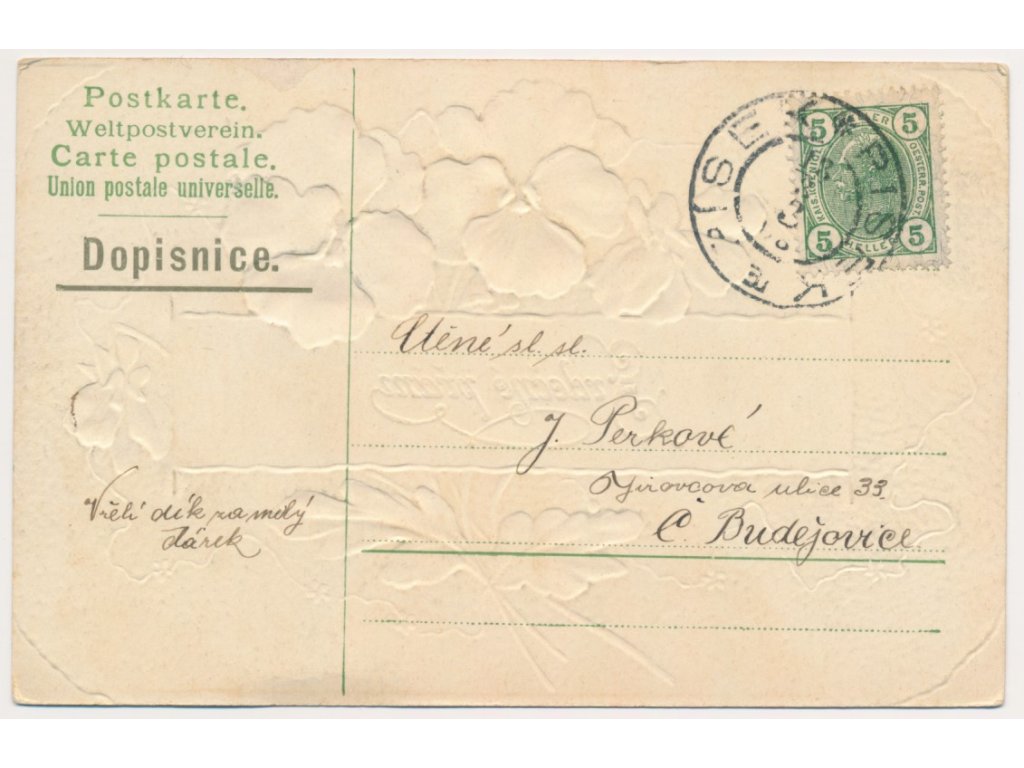 Postkarte.
Weltpostverein.
Carte postale.
Union postale universelle.
Dopisnice.
PISEK
PISEK
5 HELLER 5
KAIS. KÖNIGL. OESTERR. POST.
5 HELLER 5
Ctěné sl. sl.
J. Perkové
Jírovcova ulice 33.
Č. Budějovice.
Vřelí dík za milý
dárek